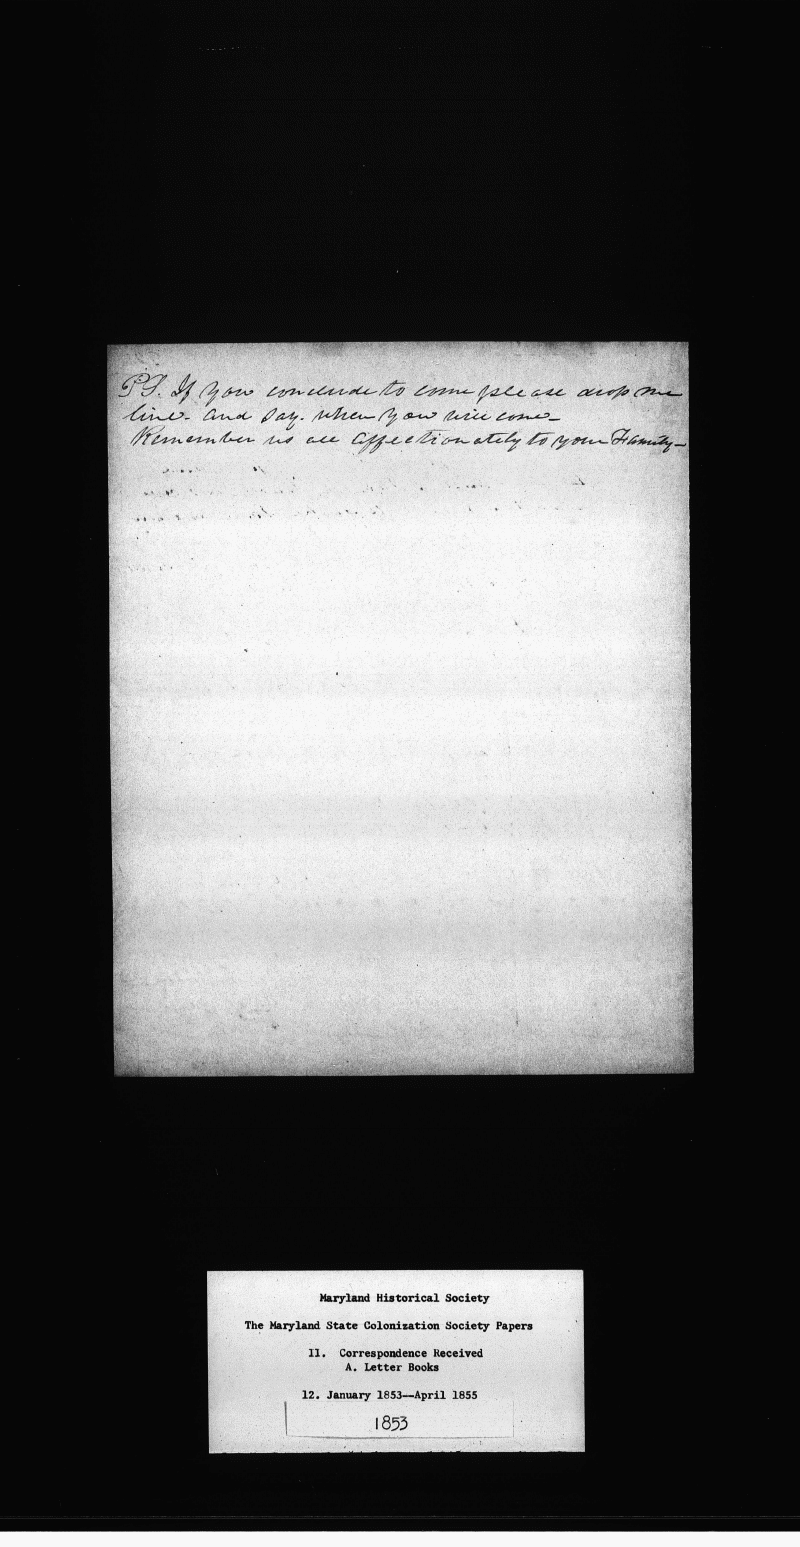 PS. If you conclude to come please drop me
line. and say. when you will come_
Remember us all affectionately to your Family_
Maryland Historical Society
The Maryland State Colonization Society Papers
11. Correspondence Received
A. Letter Books
12. January 1853--April 1855
1853